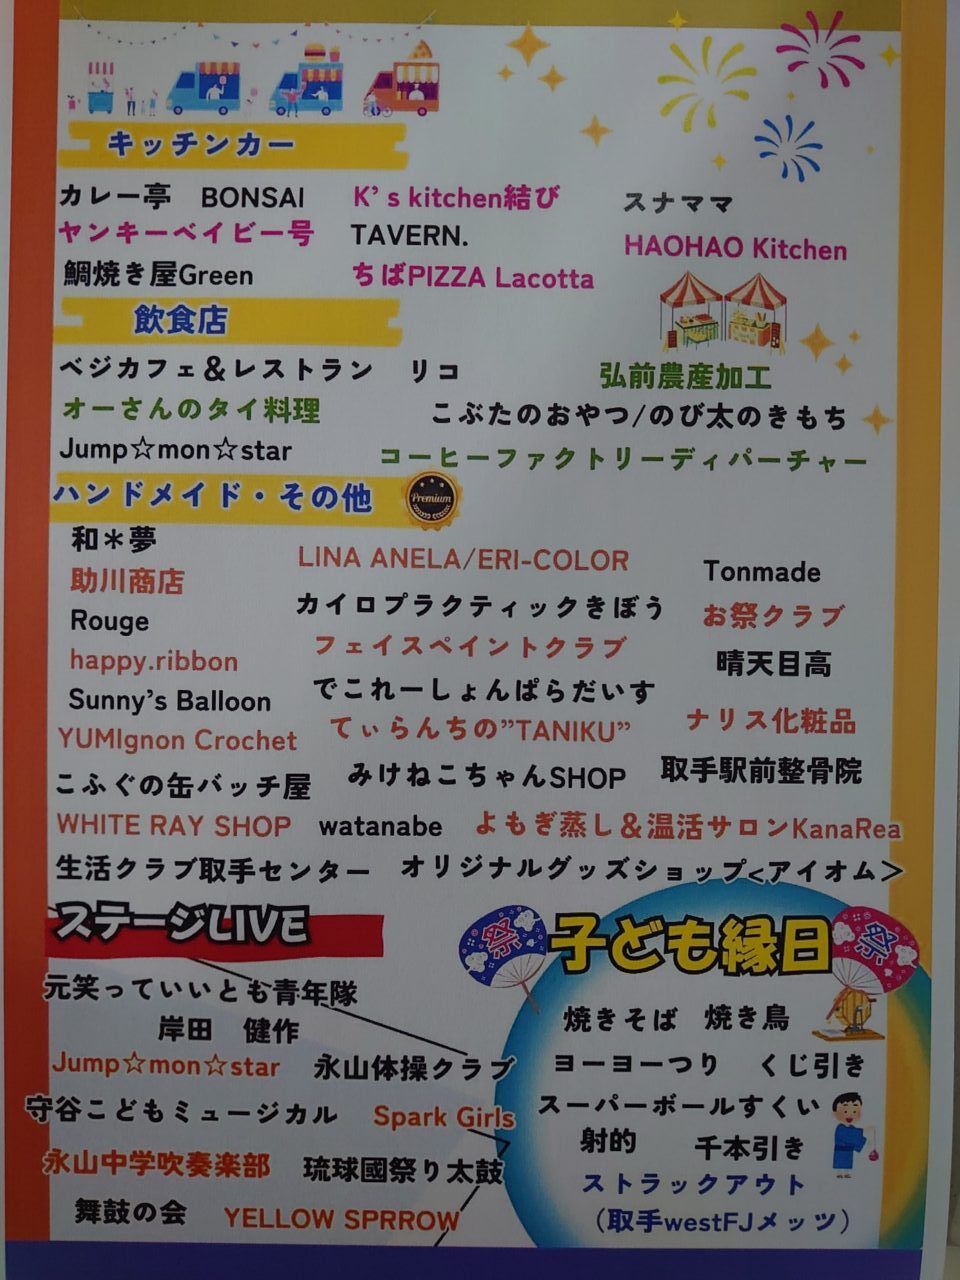 キッチンカー
カレー亭　BONSAI
K’ s kitchen結び
スナママ
ヤンキーベイビー号
TAVERN.
HAOHAO Kitchen
鯛焼き屋Green
ちばPIZZA Lacotta
飲食店
ベジカフェ＆レストラン　リコ
弘前農産加工
オーさんのタイ料理
こぶたのおやつ/のび太のきもち
Jump☆mon☆star
コーヒーファクトリーディパーチャー
ハンドメイド・その他
Premium
和＊夢
LINA ANELA/ERI-COLOR
Tonmade
助川商店
カイロプラクティックきぼう
お祭クラブ
Rouge
フェイスペイントクラブ
晴天目高
happy.ribbon
でこれーしょんぱらだいす
Sunny’s Balloon
てぃらんちの”TANIKU”
ナリス化粧品
YUMIgnon Crochet
みけねこちゃんSHOP
取手駅前整骨院
こふぐの缶バッチ屋
WHITE RAY SHOP
watanabe
よもぎ蒸し＆温活サロンKanaRea
生活クラブ取手センター
オリジナルグッズショップ<アイオム＞
ステージLIVE
元笑っていいとも青年隊
岸田　健作
Jump☆mon☆star
永山体操クラブ
守谷こどもミュージカル
Spark Girls
永山中学吹奏楽部
琉球國祭り太鼓
舞鼓の会
YELLOW SPRROW
祭
子ども縁日
祭
焼きそば　焼き鳥
ヨーヨーつり　くじ引き
スーパーボールすくい
射的　千本引き
ストラックアウト
（取手westFJメッツ）